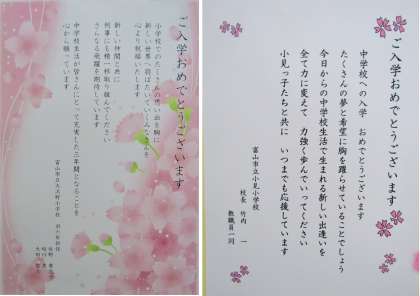 ご入学おめでとうございます
小学校でのたくさんの思い出を胸に
新しい世界へ羽ばたいていくみなさんを
心より祝福いたします
新しい仲間と共に
何事にも精一杯取り組んでください
さらなる飛躍を期待しています
中学校生活が皆さんにとって充実した三年間となることを
心から願っています
富山市立大久保小学校
ご入学おめでとうございます
中学校への入学 おめでとうございます
たくさんの夢と希望に胸を躍らせていることでしょう
今日からの中学校生活で生まれる新しい出逢いを
全て力に変えて 力強く歩んでいってください
小見っ子たちと共に いつまでも応援しています
富山市立小見小学校
校長 竹内 一
教職員一同